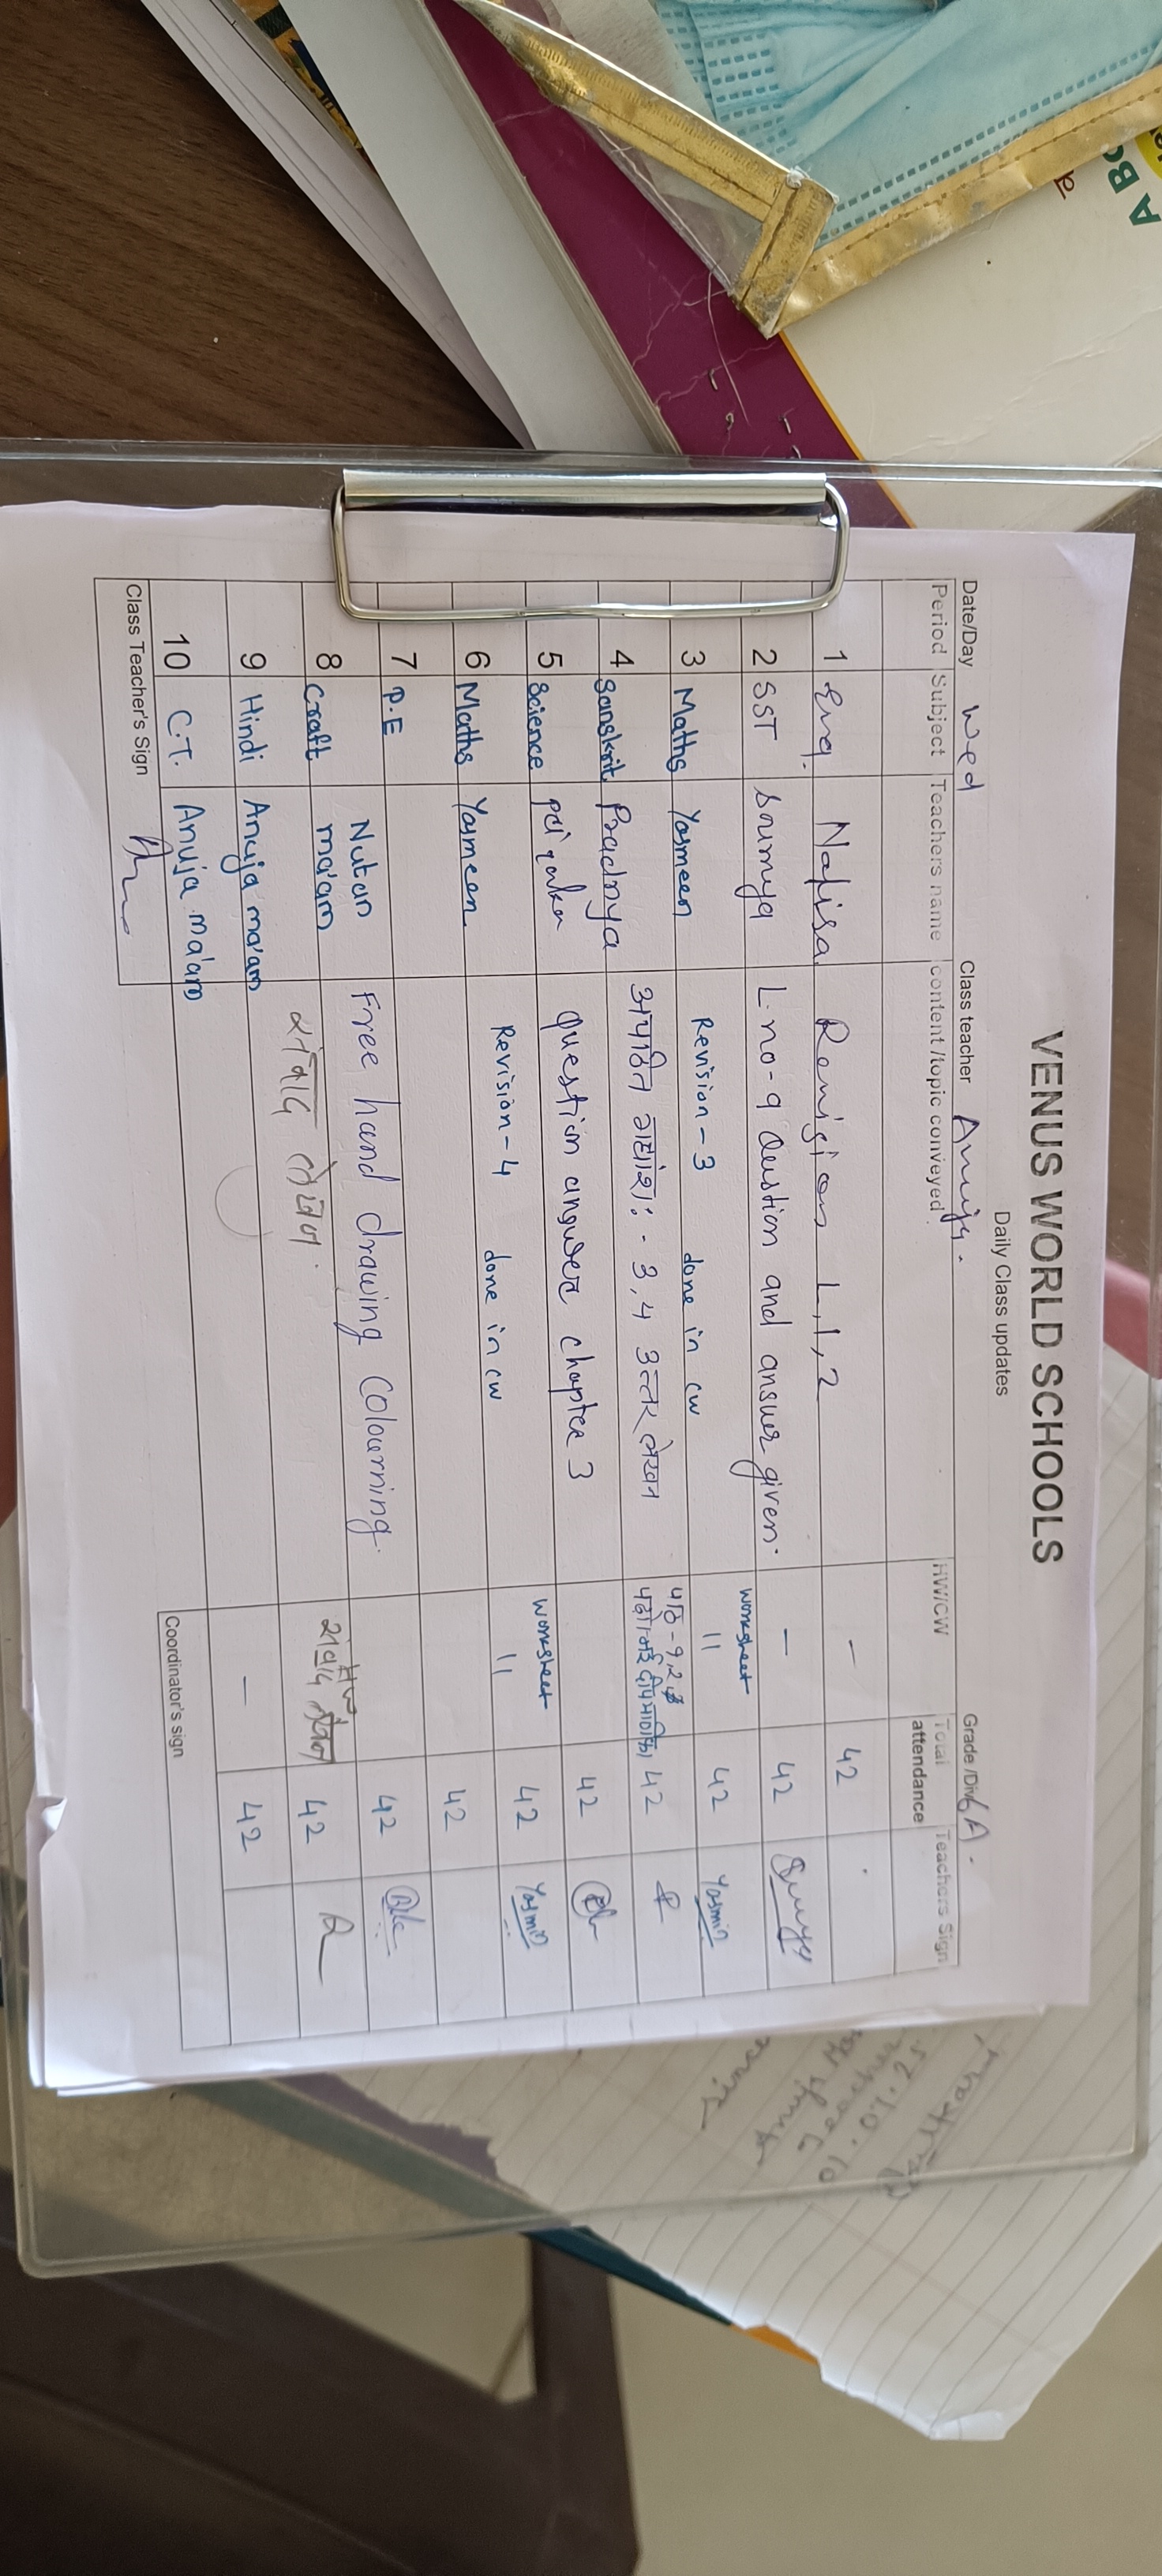 VENUS WORLD SCHOOLS
Daily Class updates
Date/Day Wed Class teacher Anuja. Grade /Div 6 A.
Period Subject Teachers name content /topic conveyed HW/CW Total attendance Teachers Sign
1 Eng. Nafisa Revision L, 1, 2 – 42
2 SST Soumya L.no-9 Question and answer given. – 42
3 Maths Yasmeen Revision-3 done in cw worksheet 11 42 Yasmin
4 Sanskrit Pradnya अपठित गद्यांश: - 3, 4 उत्तर लेखन पाठ - 1, 2 42
5 Science question answer chapter 3 42
6 Maths Yasmeen Revision-4 done in cw worksheet 11 42 Yasmin
7 P.E 42
8 Craft Nutan ma'am Free hand drawing Colourning. 42
9 Hindi Anuja ma'am संवाद लेखन. संवाद लेखन 42
10 C.T. Anuja ma'am – 42
Class Teacher's Sign Coordinator's sign
since
Teacher
01.07.25
A BC